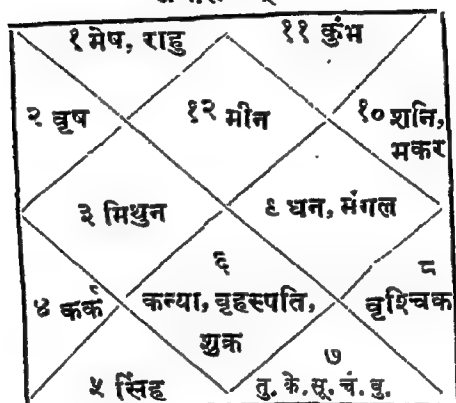 १ मेष, राहु
११ कुंभ
२ वृष
१२ मीन
१० शनि,
मकर
३ मिथुन
९ धन, मंगल
६
कन्या, वृहस्पति,
शुक्र
४ कर्क
८
वृश्चिक
५ सिंह
७
तु. के. सू. चं. बु.